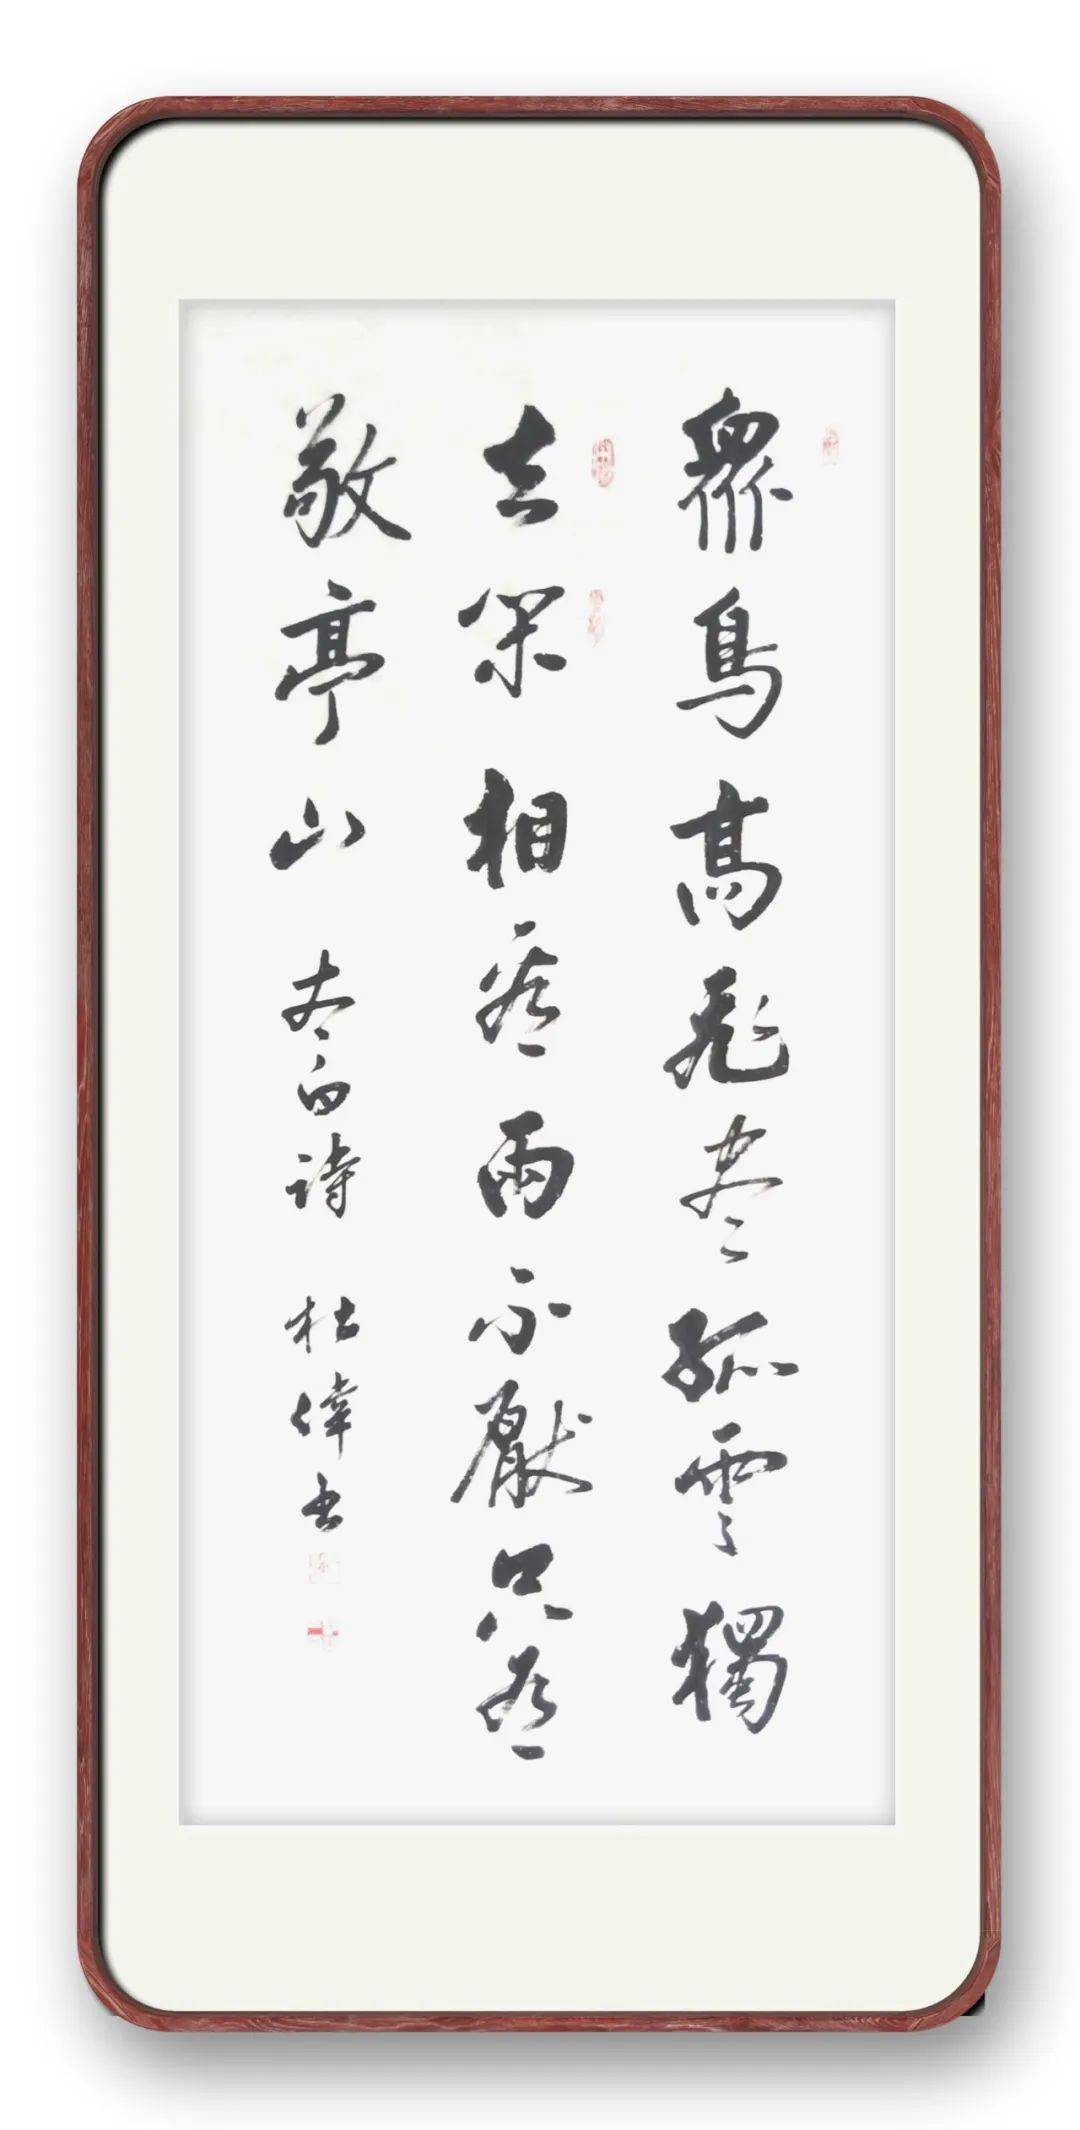 眾鳥高飛盡孤雲獨
去閑相看兩不厭只有
敬亭山 李白詩 杜偉書